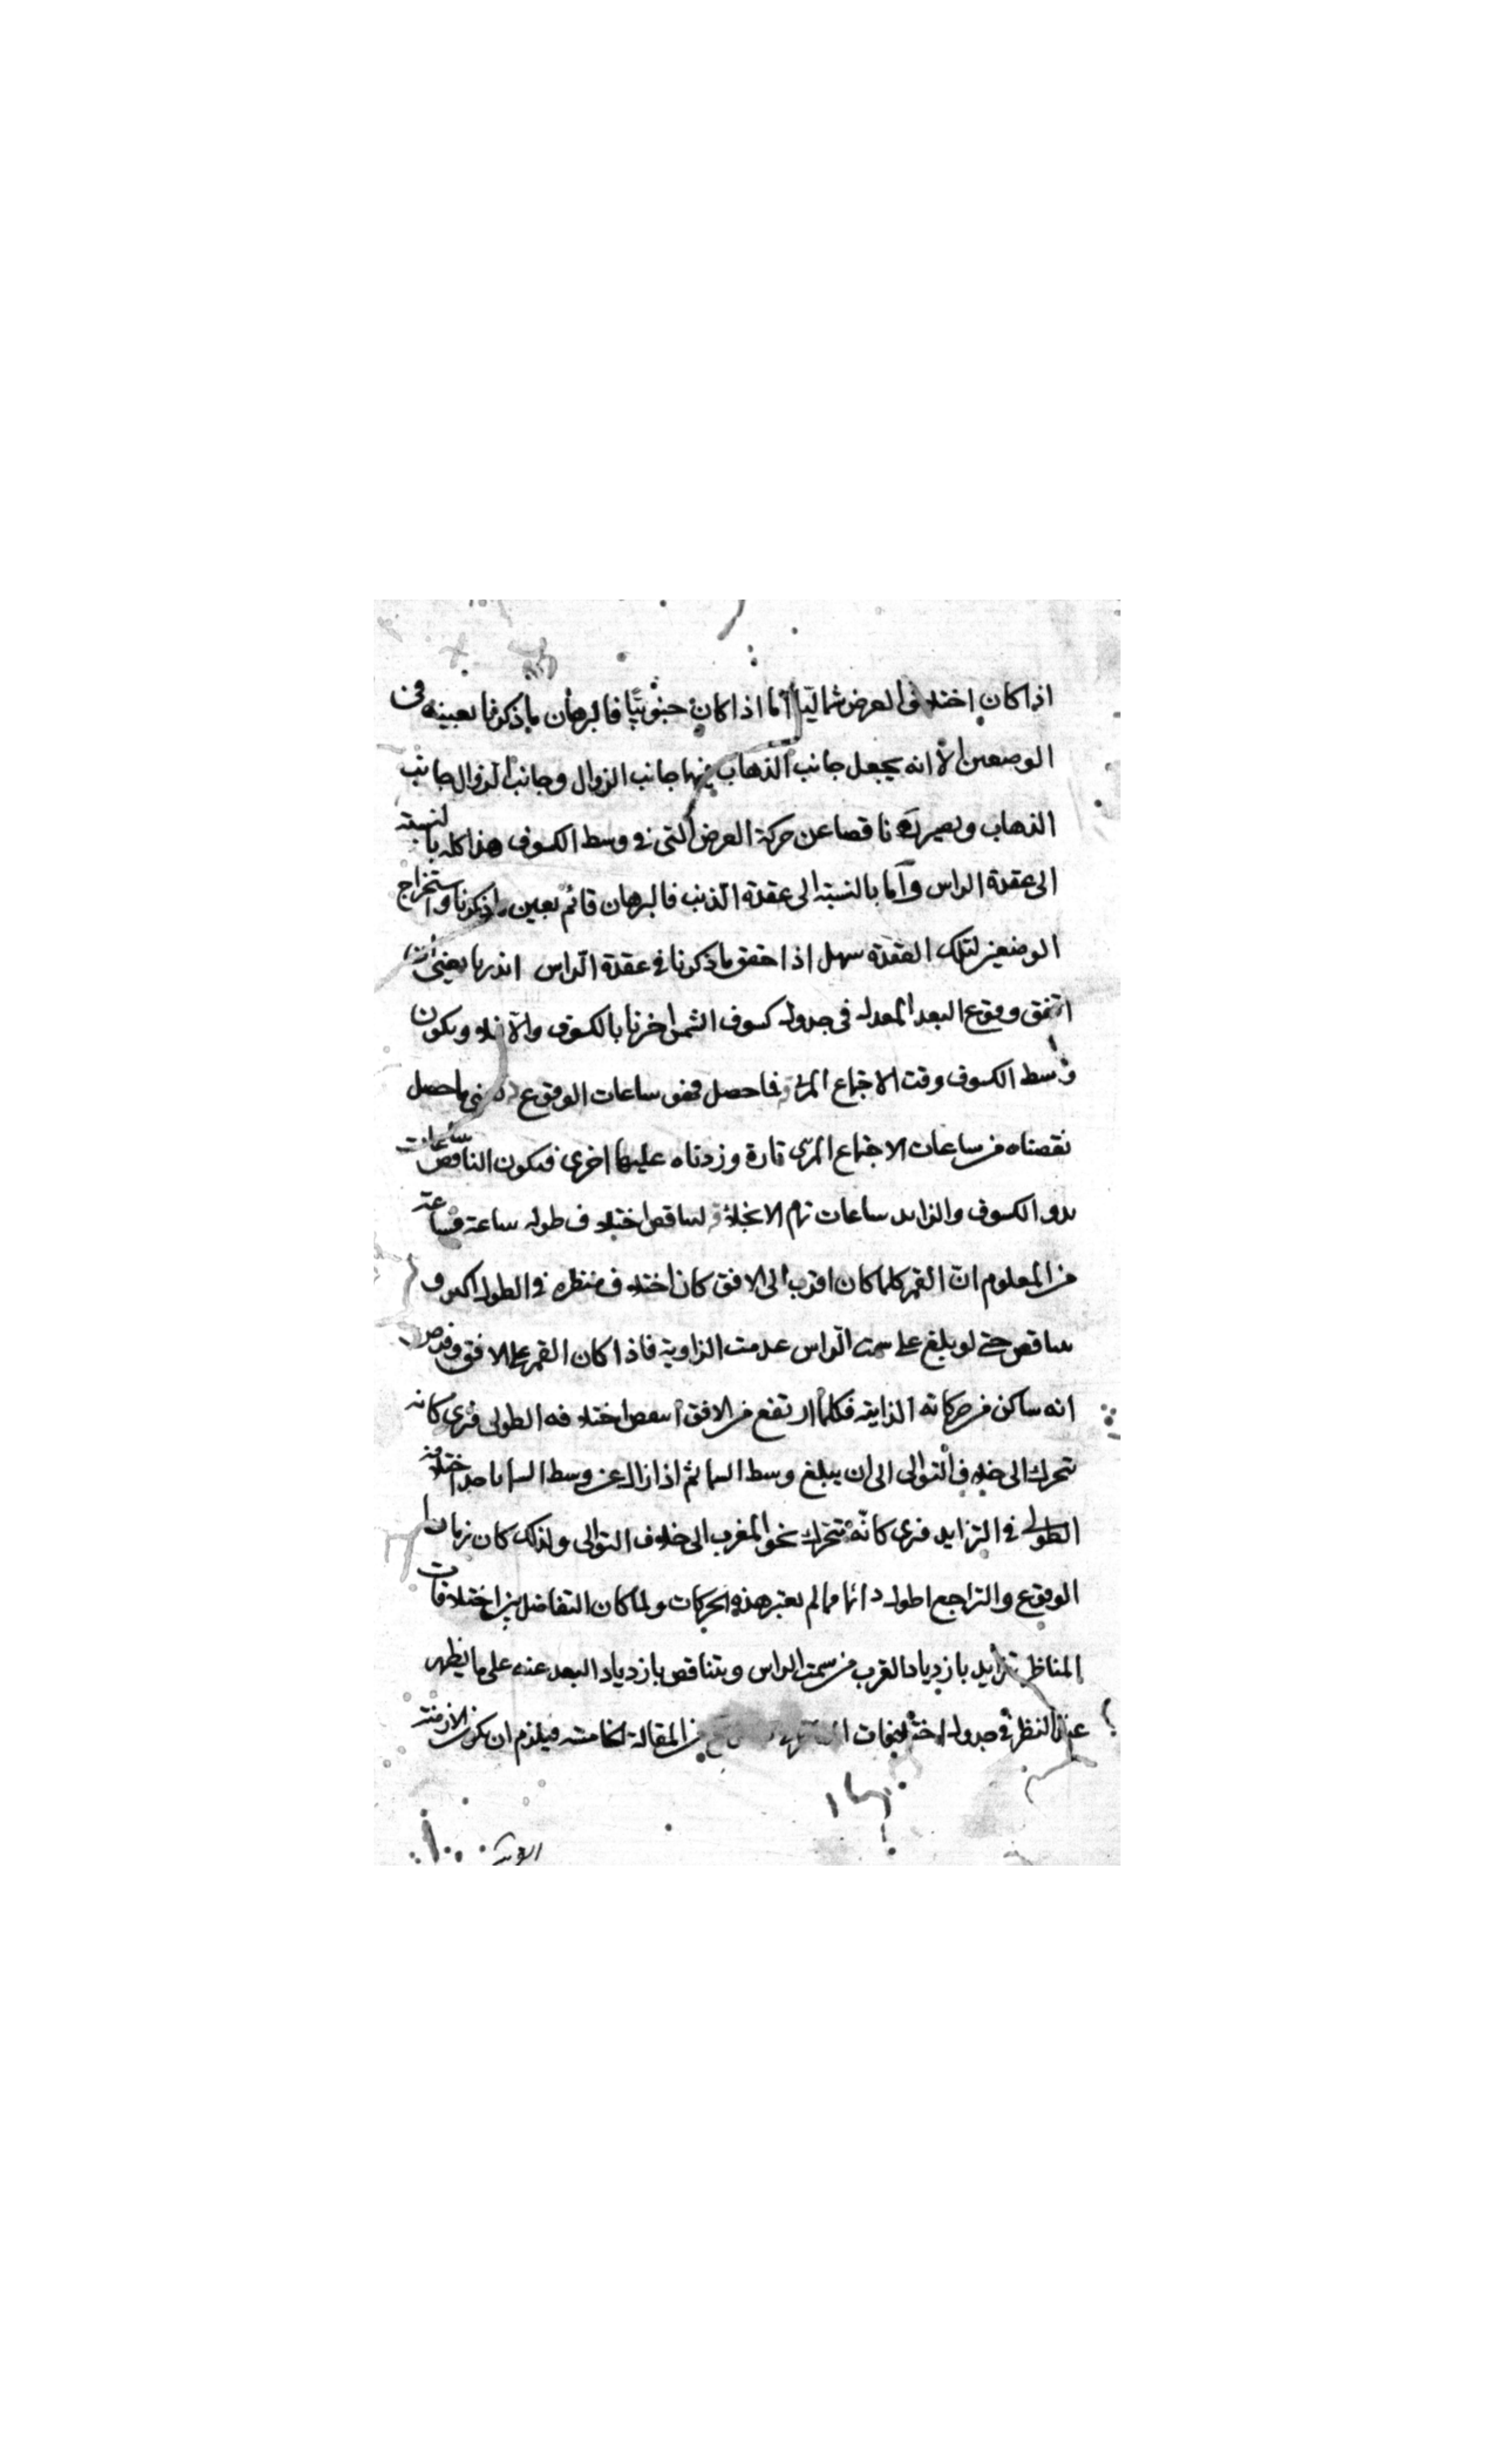 اذا كان اختلاف العرض شماليّا أما اذا كان جنوبيّا فالبرهان ما ذكرنا بعينه في
الوضعين الا انه يجعل جانب الذهاب فيها جانب الزوال وجانب الزوال جانب
الذهاب ويصير ناقصا عن حركة العرض التي في وسط الكسوف هذا كله بالنسبة
الى عقدة الراس وأما بالنسبة الى عقدة الذنب فالبرهان قائم بعين ما ذكرنا واستخراج
الوضعين لتلك العقدة سهل اذا حقق ما ذكرنا في عقدة الراس
اتفق وقوع البعد المعدل في جدول كسوف الشمس اخرنا بالكسوف والا فلا ويكون
وسط الكسوف وقت الاجتماع المرئي فما حصل فهو ساعات الوقوع ما حصل
نقصناه من ساعات الاجتماع المرئي تارة وزدناه عليها اخرى فيكون الناقص ساعات
بدو الكسوف والزايد ساعات تمام الانجلا اختلاف طوله ساعة فساعة
من المعلوم انّ القمر كلما كان اقرب الى الافق كان اختلاف منظره في الطول اكبر و
يتناقص حتى لو بلغ على سمت الراس عدمت الزاوية فاذا كان القمر على الافق وفرض
انه ساكن من حركاته الذاتية فكلما ارتفع من الافق انتقص اختلافه الطولي فترى كانه
يتحرك الى خلاف التوالي الى ان يبلغ وسط السما ثم اذا زال عن وسط السما ياخذ اختلافه
الطولي في التزايد فترى كانّه يتحرك نحو المغرب الى خلاف التوالي ولذلك كان زمان
الوقوع والتراجع اطول دائما مما لم يعتبر هذه الحركات ولما كان التفاضل بين اختلافات
المناظر تزايد بازدياد القرب من سمت الراس ويتناقص بازدياد البعد عنه على ما يظهر
عند النظر في جدول اختلافات من المقالة الخامسة فيلزم ان يكون الازمنة